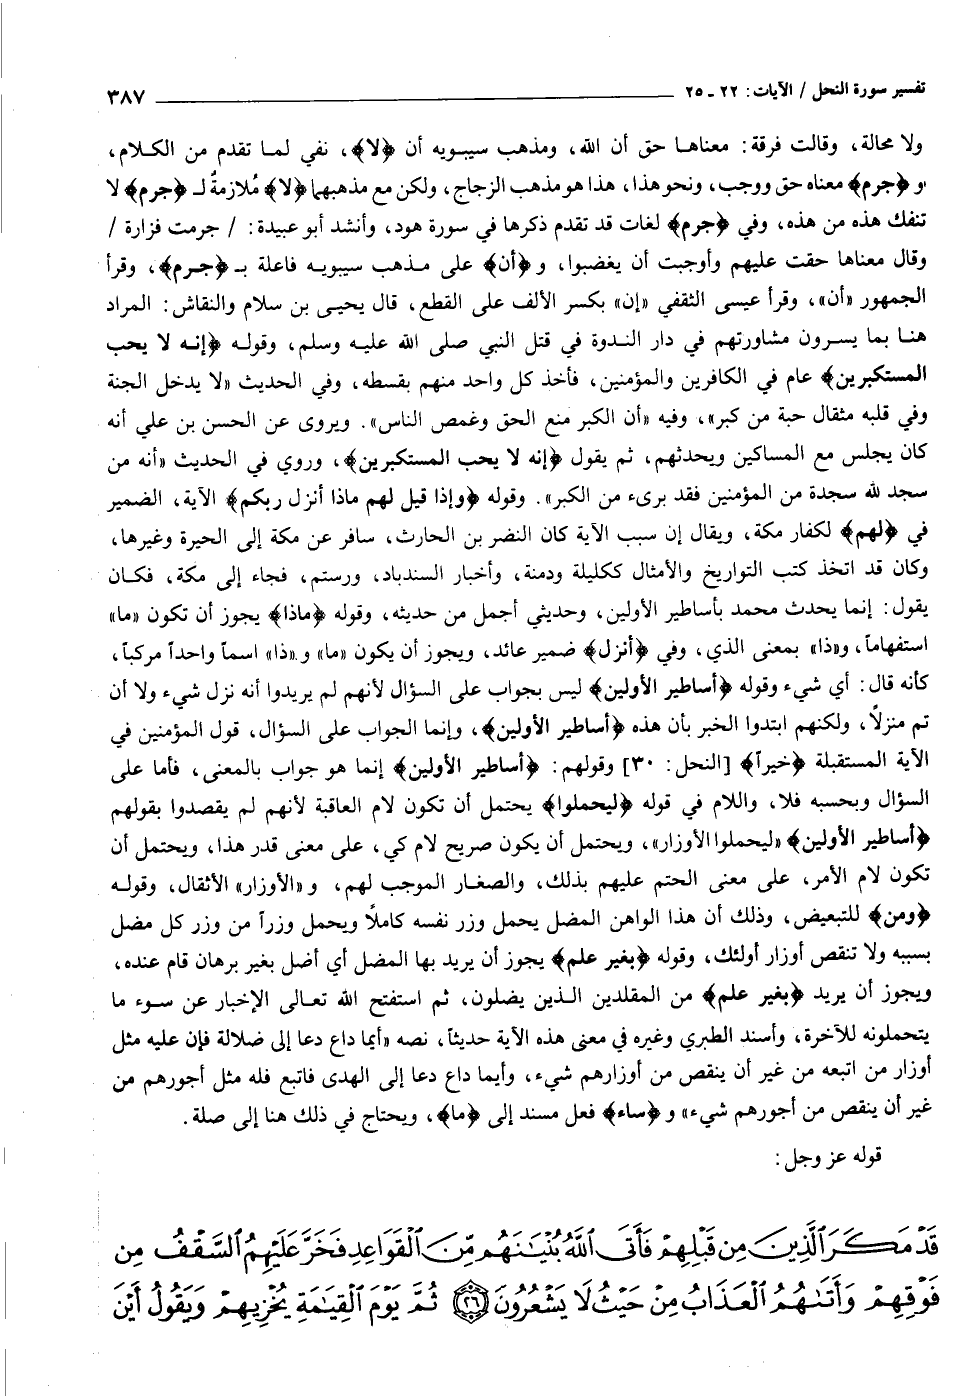 تفسير سورة النحل / الآيات: ٢٢ - ٢٥ ٣٨٧
ولا محالة، وقالت فرقة: معناها حق أن الله، ومذهب سيبويه أن ﴿لا﴾، نفي لما تقدم من الكلام،
و ﴿جرم﴾ معناه حق ووجب، ونحو هذا، هذا هو مذهب الزجاج، ولكن مع مذهبهما ﴿لا﴾ مُلازمةٌ لـ ﴿جرم﴾ لا
تنفك هذه من هذه، وفي ﴿جرم﴾ لغات قد تقدم ذكرها في سورة هود، وأنشد أبو عبيدة: / جرمت فزارة /
وقال معناها حقت عليهم وأوجبت أن يغضبوا، و ﴿أن﴾ على مذهب سيبويه فاعلة بـ ﴿جرم﴾، وقرأ
الجمهور «أن»، وقرأ عيسى الثقفي «إن» بكسر الألف على القطع، قال يحيى بن سلام والنقاش: المراد
هنا بما يسرون مشاورتهم في دار الندوة في قتل النبي صلى الله عليه وسلم، وقوله ﴿إنه لا يحب
المستكبرين﴾ عام في الكافرين والمؤمنين، فأخذ كل واحد منهم بقسطه، وفي الحديث «لا يدخل الجنة
وفي قلبه مثقال حبة من كبر»، وفيه «أن الكبر منع الحق وغمص الناس». ويروى عن الحسن بن علي أنه
كان يجلس مع المساكين ويحدثهم، ثم يقول ﴿إنه لا يحب المستكبرين﴾، وروي في الحديث «أنه من
سجد لله سجدة من المؤمنين فقد برىء من الكبر». وقوله ﴿وإذا قيل لهم ماذا أنزل ربكم﴾ الآية، الضمير
في ﴿لهم﴾ لكفار مكة، ويقال إن سبب الآية كان النضر بن الحارث، سافر عن مكة إلى الحيرة وغيرها،
وكان قد اتخذ كتب التواريخ والأمثال ككليلة ودمنة، وأخبار السندباد، ورستم، فجاء إلى مكة، فكان
يقول: إنما يحدث محمد بأساطير الأولين، وحديثي أجمل من حديثه، وقوله ﴿ماذا﴾ يجوز أن تكون «ما»
استفهاماً، و«ذا» بمعنى الذي، وفي ﴿أنزل﴾ ضمير عائد، ويجوز أن يكون «ما» و«ذا» اسماً واحداً مركباً،
كأنه قال: أي شيء وقوله ﴿أساطير الأولين﴾ ليس بجواب على السؤال لأنهم لم يريدوا أنه نزل شيء ولا أن
تم منزلاً، ولكنهم ابتدوا الخبر بأن هذه ﴿أساطير الأولين﴾، وإنما الجواب على السؤال، قول المؤمنين في
الآية المستقبلة ﴿خيراً﴾ [النحل: ٣٠] وقولهم: ﴿أساطير الأولين﴾ إنما هو جواب بالمعنى، فأما على
السؤال وبحسبه فلا، واللام في قوله ﴿ليحملوا﴾ يحتمل أن تكون لام العاقبة لأنهم لم يقصدوا بقولهم
﴿أساطير الأولين﴾ «ليحملوا الأوزار»، ويحتمل أن يكون صريح لام كي، على معنى قدر هذا، ويحتمل أن
تكون لام الأمر، على معنى الحتم عليهم بذلك، والصغار الموجب لهم، و «الأوزار» الأثقال، وقوله
﴿ومن﴾ للتبعيض، وذلك أن هذا الواهن المضل يحمل وزر نفسه كاملاً ويحمل وزراً من وزر كل مضل
بسببه ولا تنقص أوزار أولئك، وقوله ﴿بغير علم﴾ يجوز أن يريد بها المضل أي أضل بغير برهان قام عنده،
ويجوز أن يريد ﴿بغير علم﴾ من المقلدين الذين يضلون، ثم استفتح الله تعالى الإخبار عن سوء ما
يتحملونه للآخرة، وأسند الطبري وغيره في معنى هذه الآية حديثاً، نصه «أيما داع دعا إلى ضلالة فإن عليه مثل
أوزار من اتبعه من غير أن ينقص من أوزارهم شيء، وأيما داع دعا إلى الهدى فاتبع فله مثل أجورهم من
غير أن ينقص من أجورهم شيء» و ﴿ساء﴾ فعل مسند إلى ﴿ما﴾، ويحتاج في ذلك هنا إلى صلة.
قوله عز وجل:
قَدْ مَكَرَ الَّذِينَ مِن قَبْلِهِمْ فَأَتَى اللَّهُ بُنْيَانَهُم مِّنَ الْقَوَاعِدِ فَخَرَّ عَلَيْهِمُ السَّقْفُ مِن
فَوْقِهِمْ وَأَتَاهُمُ الْعَذَابُ مِنْ حَيْثُ لَا يَشْعُرُونَ ٢٦ ثُمَّ يَوْمَ الْقِيَامَةِ يُخْزِيهِمْ وَيَقُولُ أَيْنَ